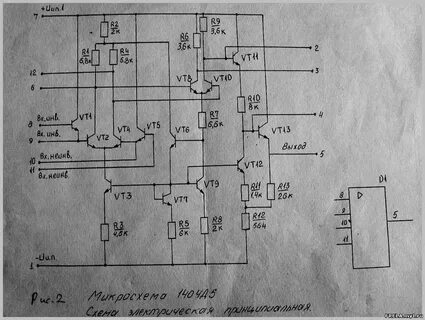 7 +Uип.1
R2
2к
R1
6,8к
R4
6,8к
R6
3,6к
R9
3,6к
VT11
2
12
3
6
VT8
VT10
Вх.инв.
8
VT1
9
Вх.инв.
VT2
VT4
VT5
VT6
R7
R10
8к
4
VT13
10
Вх.неинв.
11
Вх.неинв.
Выход
5
VT3
VT7
VT9
VT12
R3
R5
6к
R8
2к
R11
1,4к
R13
R12
1 -Uип.
D1
D
8
9
10
11
5
Рис.2 Микросхема 1404Д5
Схема электрическая принципиальная.